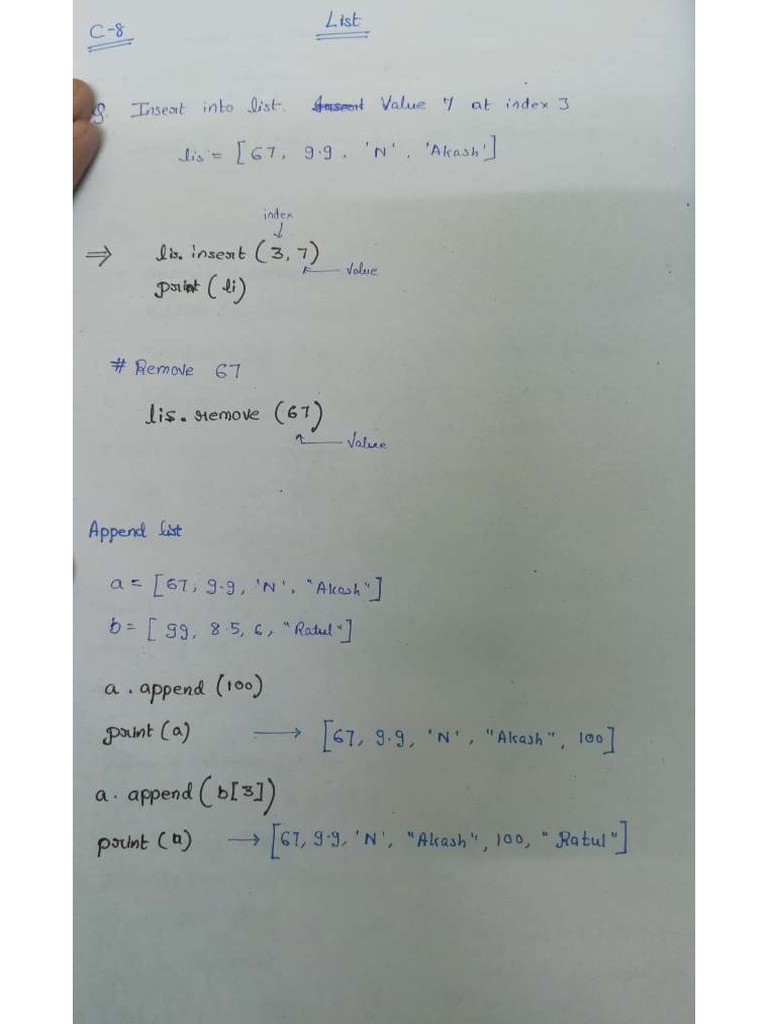 C-8
List
Q. Insert into list. Value 7 at index 3
lis = [67, 9.9, 'N', 'Akash']
index
⇒ lis. insert (3, 7)
value
print (li)
# Remove 67
lis. remove (67)
Value
Append list
a = [67, 9.9, 'N', "Akash"]
b = [99, 8.5, 6, "Ratul"]
a. append (100)
print (a) → [67, 9.9, 'N', "Akash", 100]
a. append (b[3])
print (a) → [67, 9.9, 'N', "Akash", 100, "Ratul"]